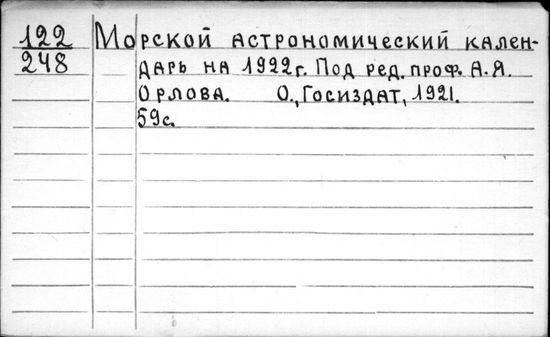 122 Морской астрономический кален-
248 дарь на 1922 г. Под ред. проф. А.Я.
Орлова. О., Госиздат, 1921.
59с.